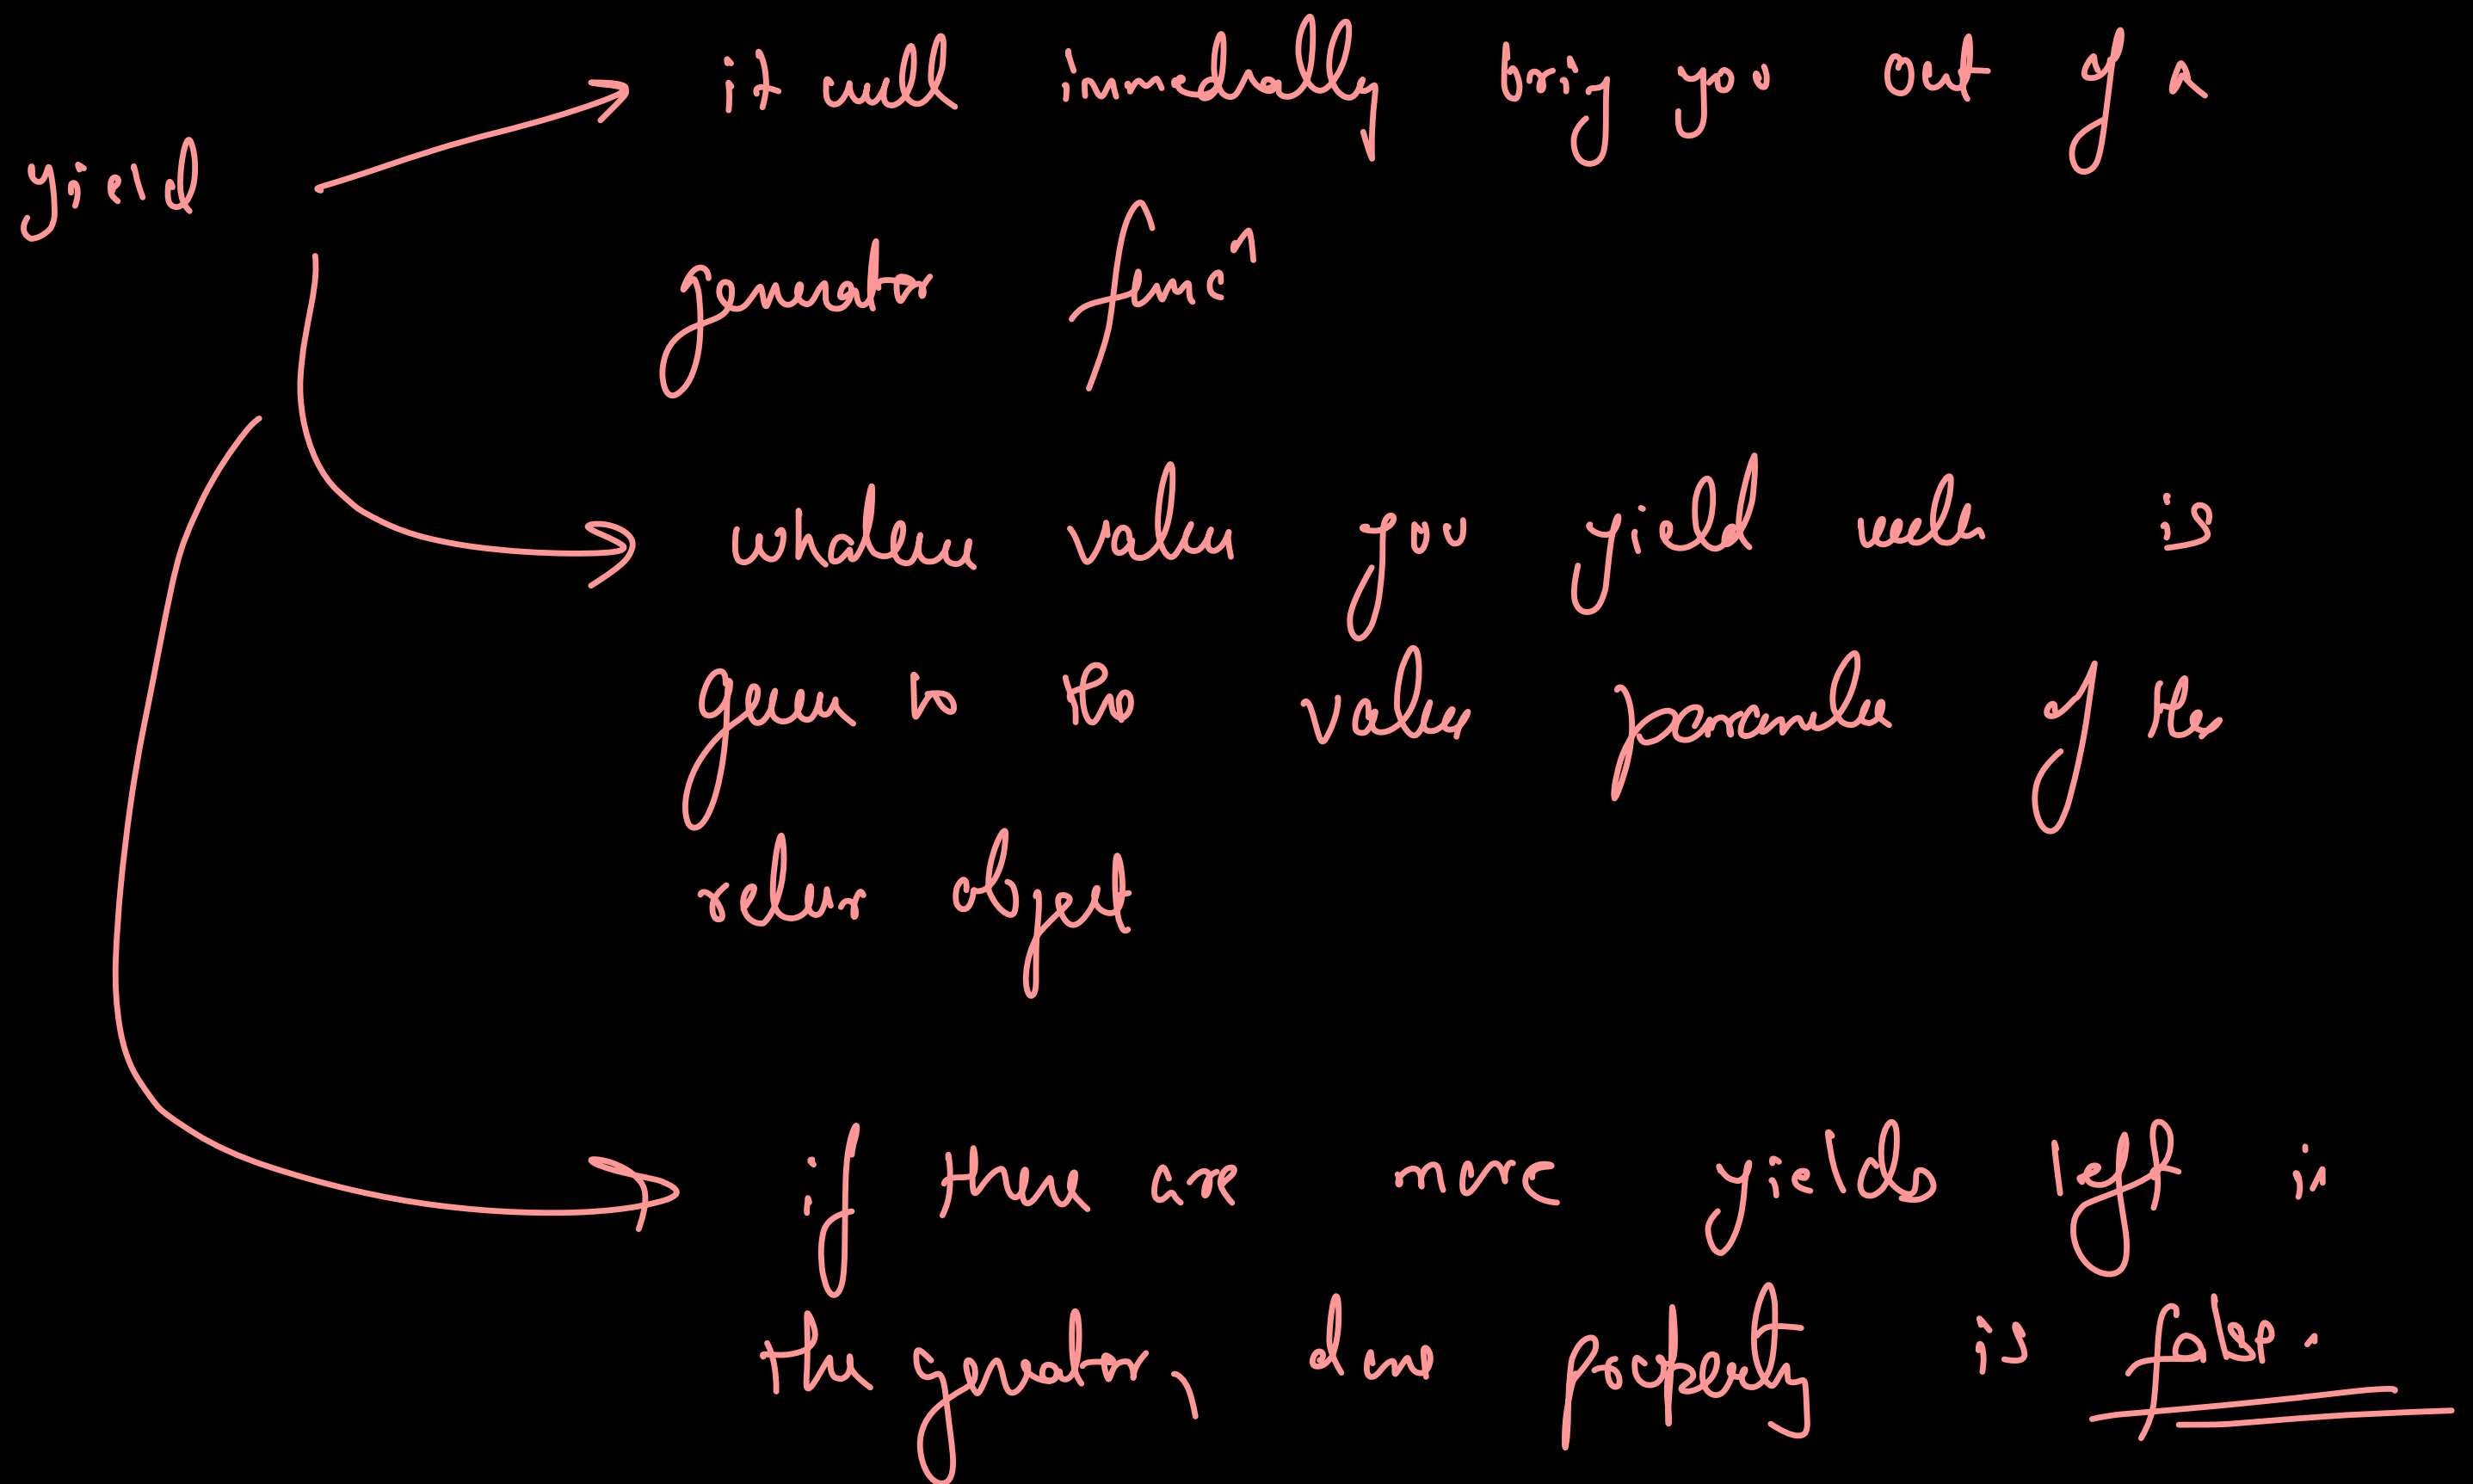 yield
it will immediately bring you out of the
generator funcⁿ
whatever value you yield with is
given to the value parameter of the
return object
if there are more yields left in
the generator, done property is false.